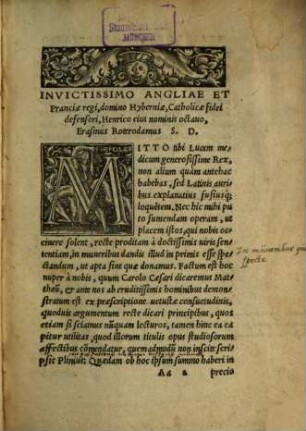 INVICTISSIMO ANGLIAE ET
Franciæ regi, domino Hyberniæ, Catholicæ fidei
defensori, Henrico eius nominis octauo,
Erasmus Roterodamus S. D.
MITTO tibi Lucam me
dicum generosissime Rex,
non alium quàm antehac
habebas, sed Latinis auri
bus explanatius fusiusq;
loquutum. Nec hic mihi pu
to sumendam operam, ut
placem istos, qui nobis oc
cinere solent, recte proditam à doctissimis uiris sen
tentiam, in muneribus dandis illud in primis esse spe
ctandum, ut apta sint quæ donamus. Factum est hoc
nuper à nobis, quum Carolo Cæsari dicaremus Mat
thæũ, & ante nos ab eruditissimis hominibus demon
stratum est ex præscriptione uetustæ consuetudinis,
quoduis argumentum recte dicari principibus, quos
etiam si sciamus nũquam lecturos, tamen hinc ea ca
pitur utilitas, quod illorum titulis opus studiosorum
affectibus cõmendatur, quem admodũ non inscite scri
psit Plinius: Quædam ob hoc ipsum summo haberi in
Aa 2 precio
In muneribus
specta